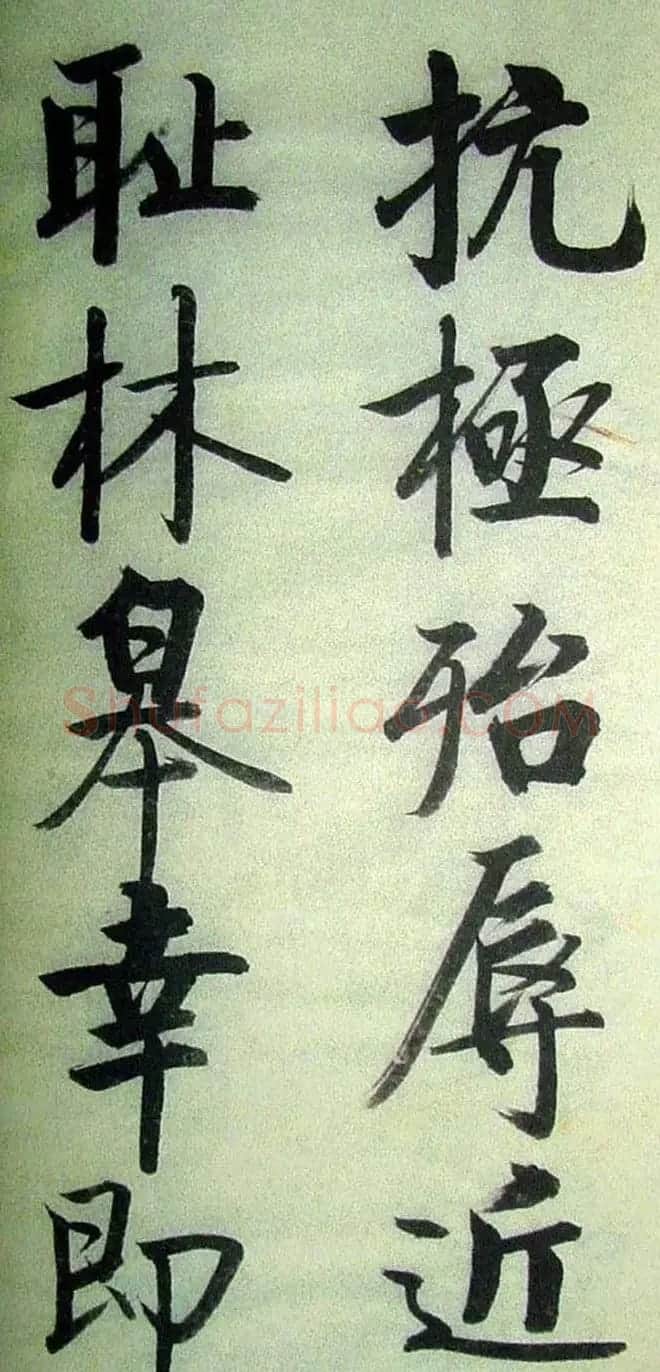 抗極殆辱近
耻林皋幸即
Shufaziliao.COM